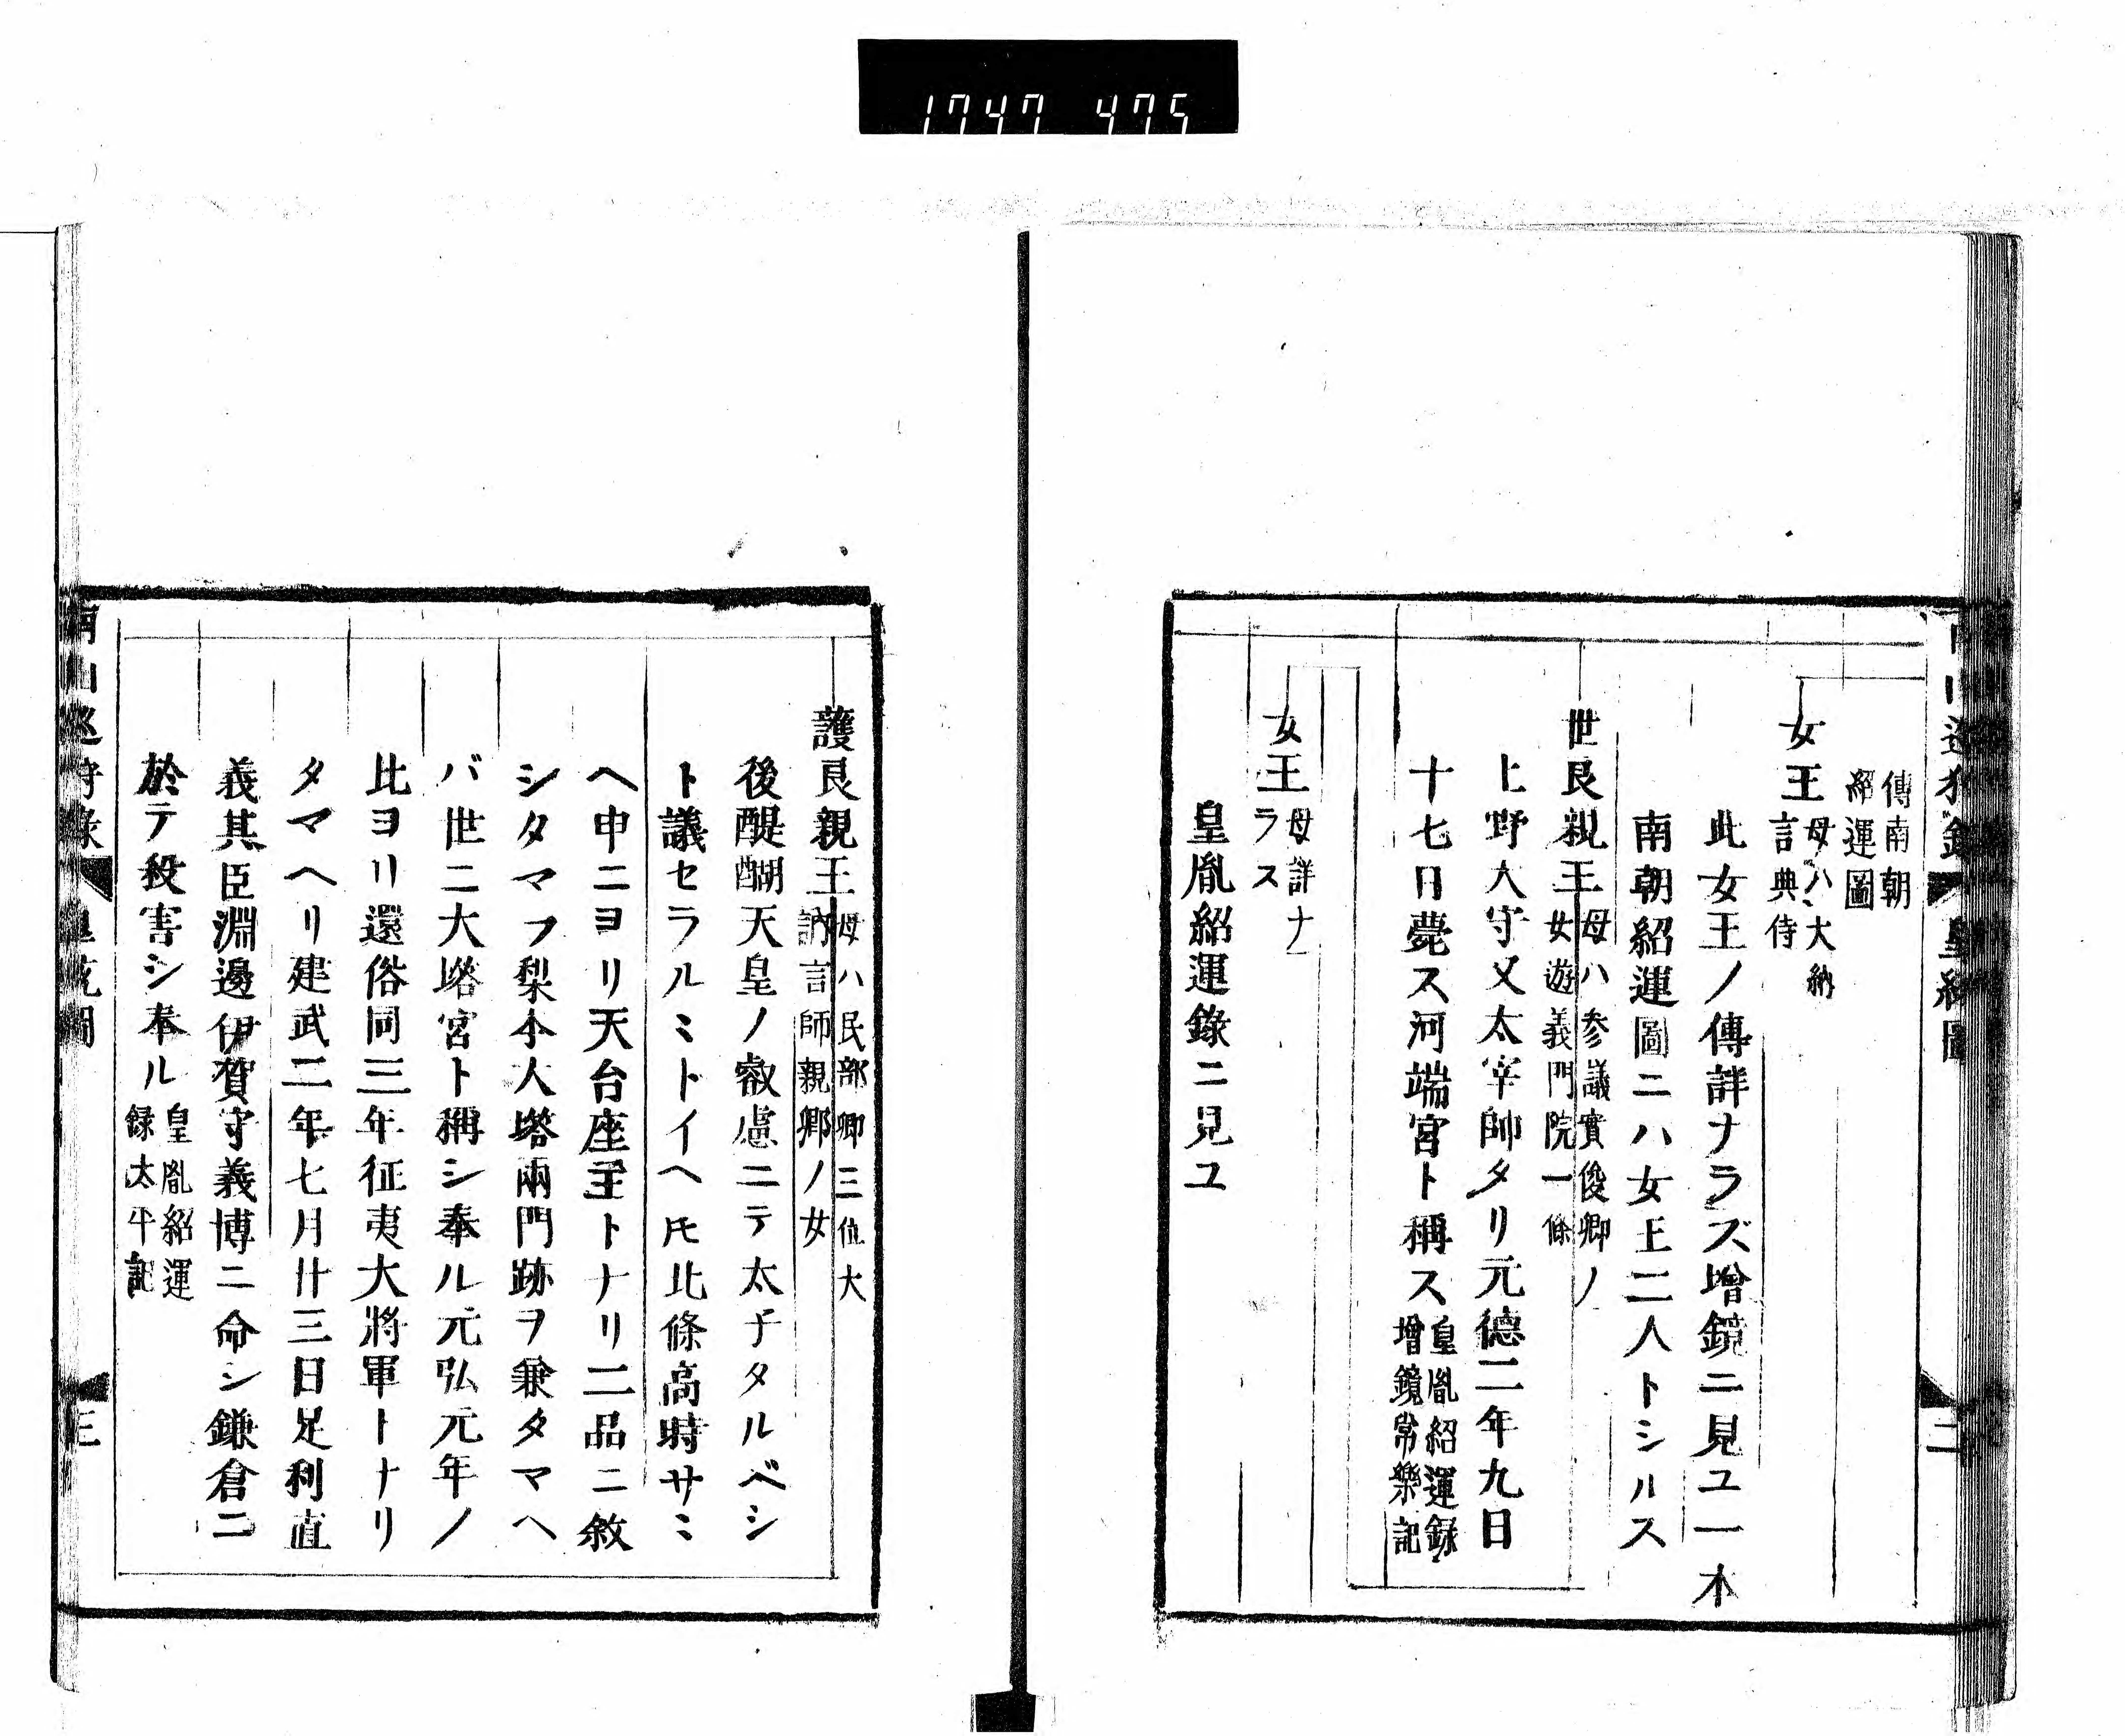 1747 475
傳南朝
紹運圖
女王母ハ大納
言典侍
此女王ノ傳詳ナラズ增鏡ニ見ユ一本
南朝紹運圖ニハ女王二人トシルス
世良親王母ハ参議實俊卿ノ
女遊義門院一條
上野大守又太宰帥タリ元德二年九日
十七日薨ス河端宮ト稱ス皇胤紹運録
增鏡常樂記
女王母詳ナ
ラス
皇胤紹運錄ニ見ユ
二
護良親王母ハ民部卿三位大
訥言師親卿ノ女
後醍醐天皇ノ叡慮ニテ太子タルベシ
ト議セラルミトイヘ𪜈北條高時サミ
ヘ申ニヨリ天台座主トナリ二品ニ敘
シタマフ梨本大塔兩門跡ヲ兼タマヘ
バ世ニ大塔宮ト稱シ奉ル元弘元年ノ
比ヨリ還俗同三年征夷大將軍トナリ
タマヘリ建武二年七月廿三日足利直
義其臣淵邊伊賀守義博ニ命シ鎌倉ニ
於テ殺害シ奉ル皇胤紹運
録太平記
三